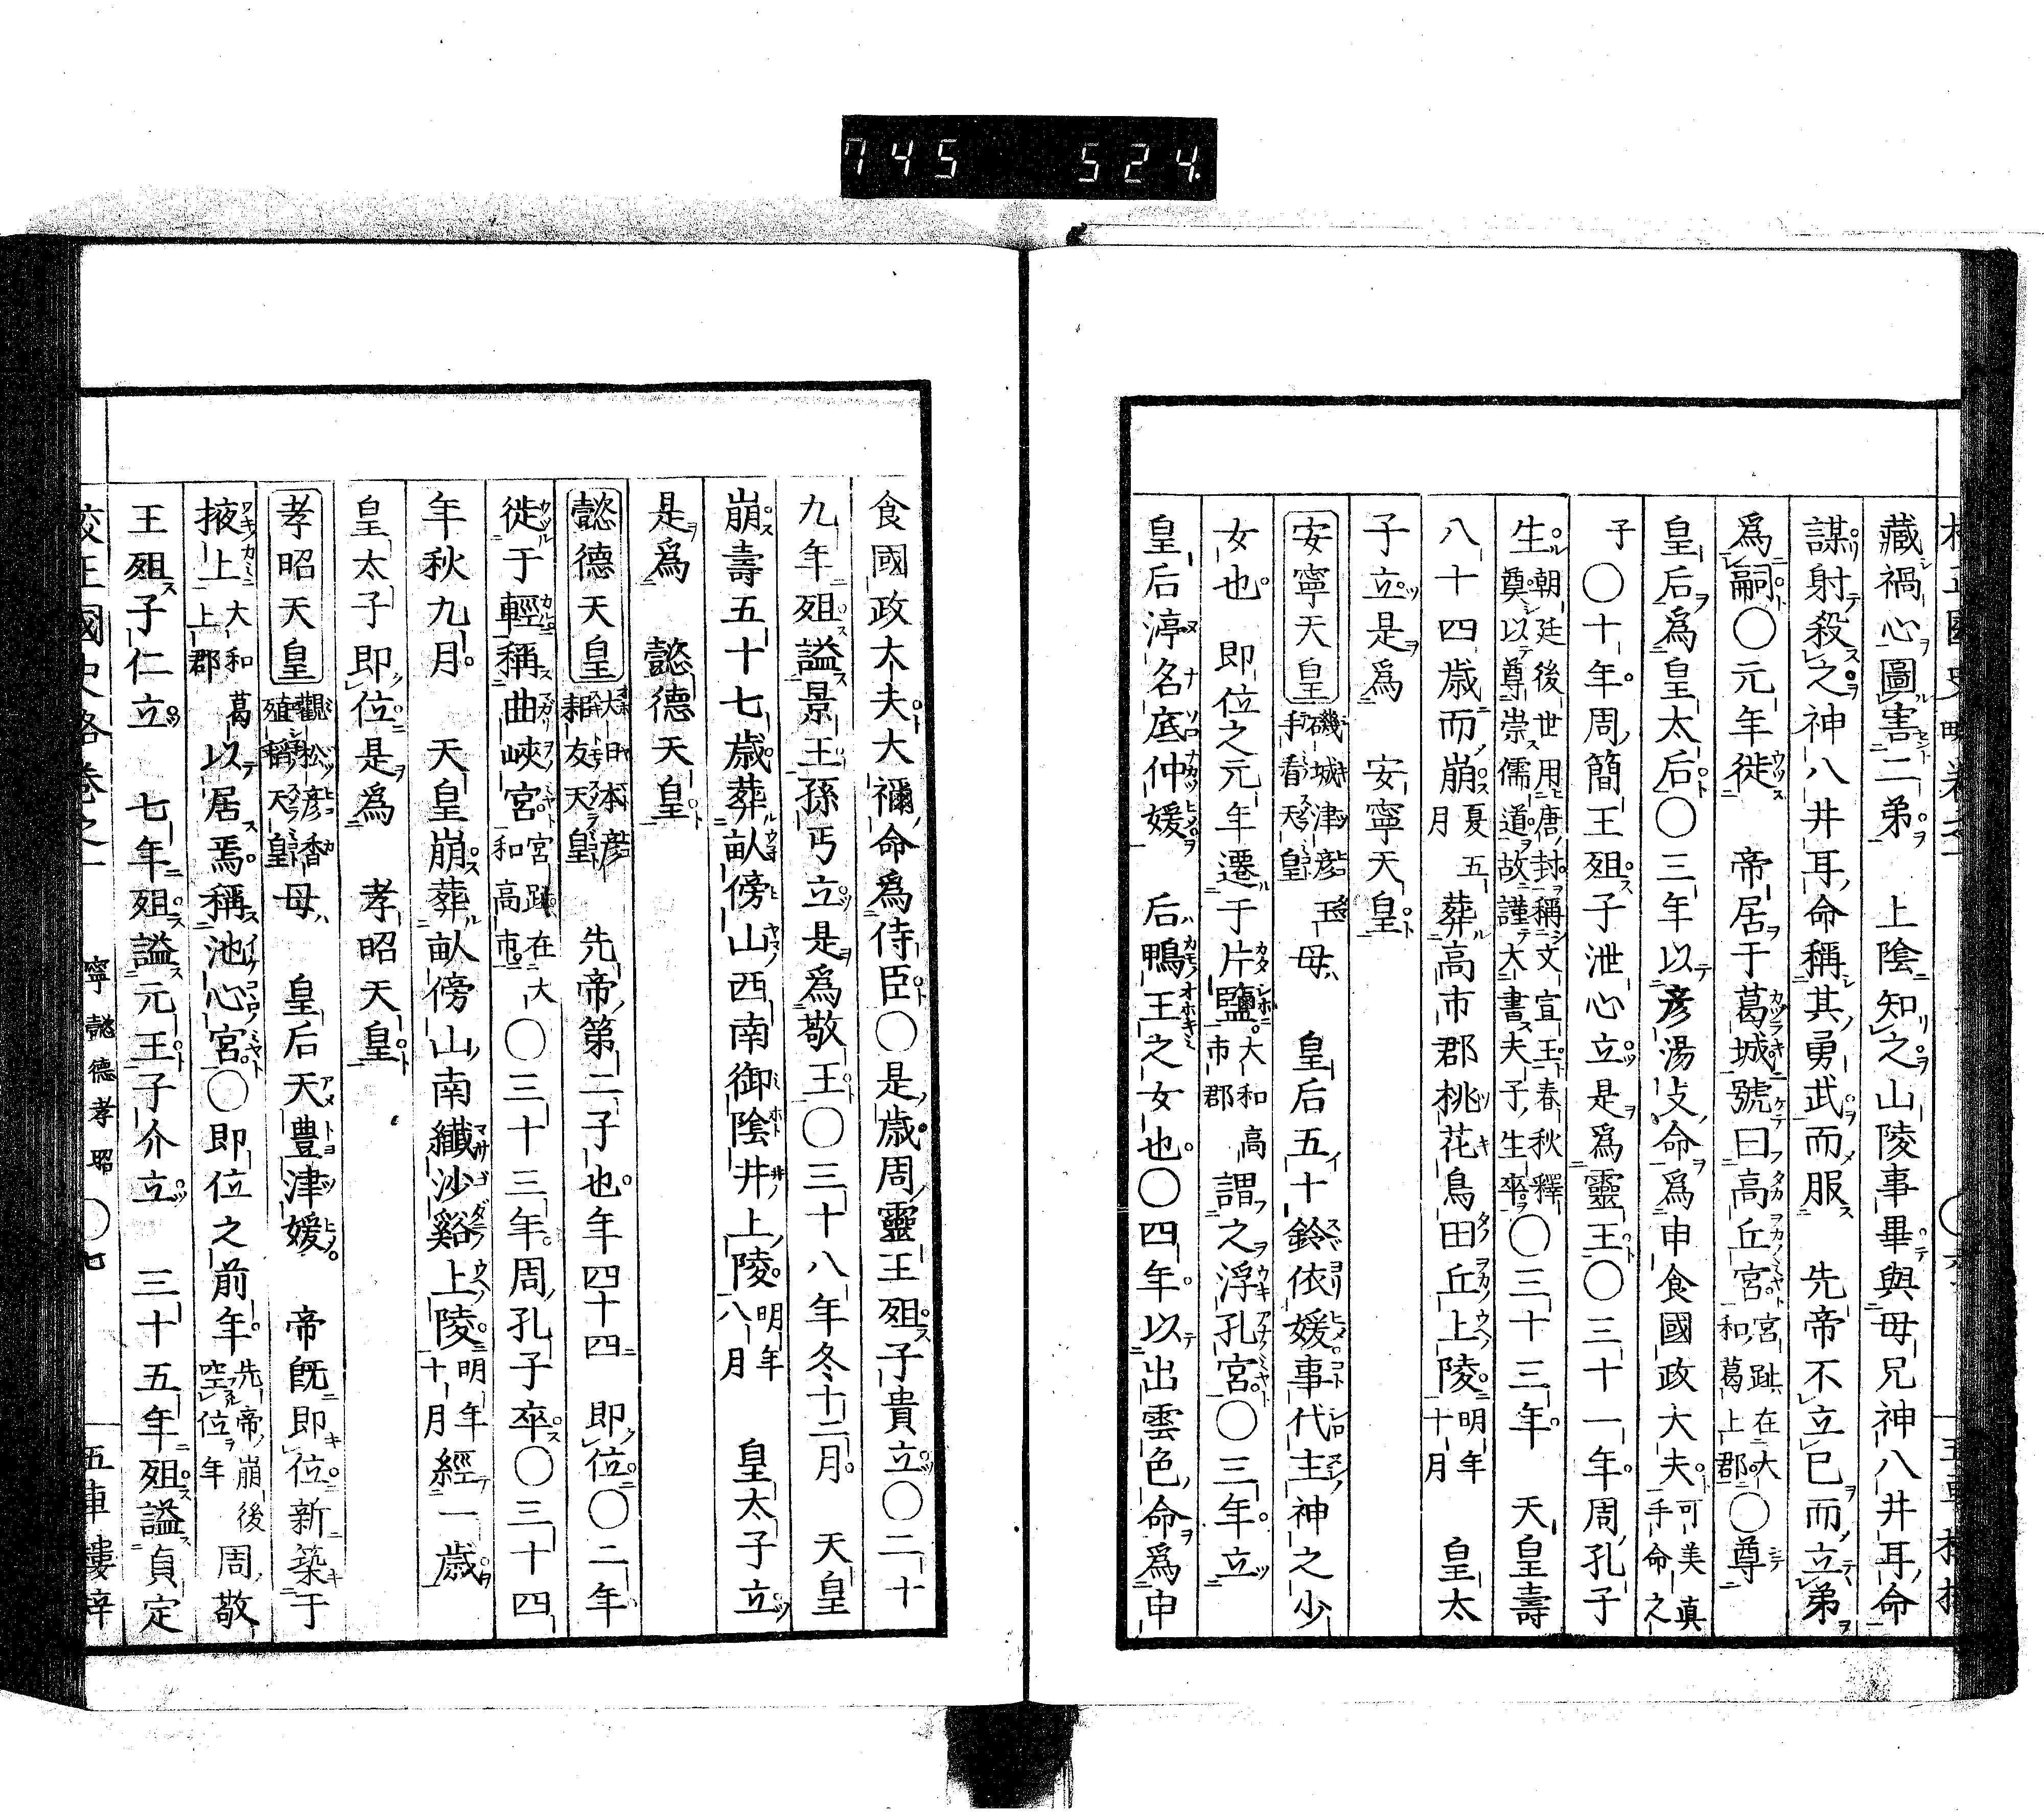 745 524.
藏禍心圖害二弟　上陰知之山陵事畢與母兄神八井耳命
謀射殺之神八井耳命稱其勇武而服　先帝不立已而立弟
爲嗣〇元年徙　帝居于葛城號曰高丘宮宮趾在大和葛上郡〇尊
皇后爲皇太后〇三年以彦湯支命爲申食國政大夫可美真手命之
子〇十年周簡王殂子泄心立是爲靈王〇三十一年周孔子
生朝廷後世用唐封稱文宣王春秋釋奠以尊崇儒道故謹大書夫子生卒〇三十三年　天皇壽
八十四歳而崩夏五月葬高市郡桃花鳥田丘上陵明年十月　皇太
子立是爲　安寧天皇
安寧天皇磯城津彦玉手看天皇母　皇后五十鈴依媛事代主神之少
女也　即位之元年遷于片鹽大和高市郡謂之浮孔宮〇三年立
皇后渟名底仲媛　后鴨王之女也〇四年以出雲色命爲申
食國政大夫大禰命爲侍臣〇是歳周靈王殂子貴立〇二十
九年殂謚景王孫丐立是爲敬王〇三十八年冬十二月　天皇
崩壽五十七歳葬畝傍山西南御陰井上陵明年八月　皇太子立
是爲　懿德天皇
懿德天皇大日本彦耜友天皇　先帝第二子也年四十四　即位〇二年
徙于輕稱曲峽宮宮趾在大和高市〇三十三年周孔子卒〇三十四
年秋九月　天皇崩葬畝傍山南纖沙谿上陵明年十月經一歳
皇太子即位是爲　孝昭天皇
孝昭天皇觀松彦香殖稻天皇母　皇后天豊津媛　帝既即位新築于
掖上大和葛上郡以居焉稱池心宮〇即位之前年先帝崩後空位年周敬
王殂子仁立　七年殂謚元王子介立　三十五年殂謚貞定
寧懿德孝昭　〇七　五車樓梓